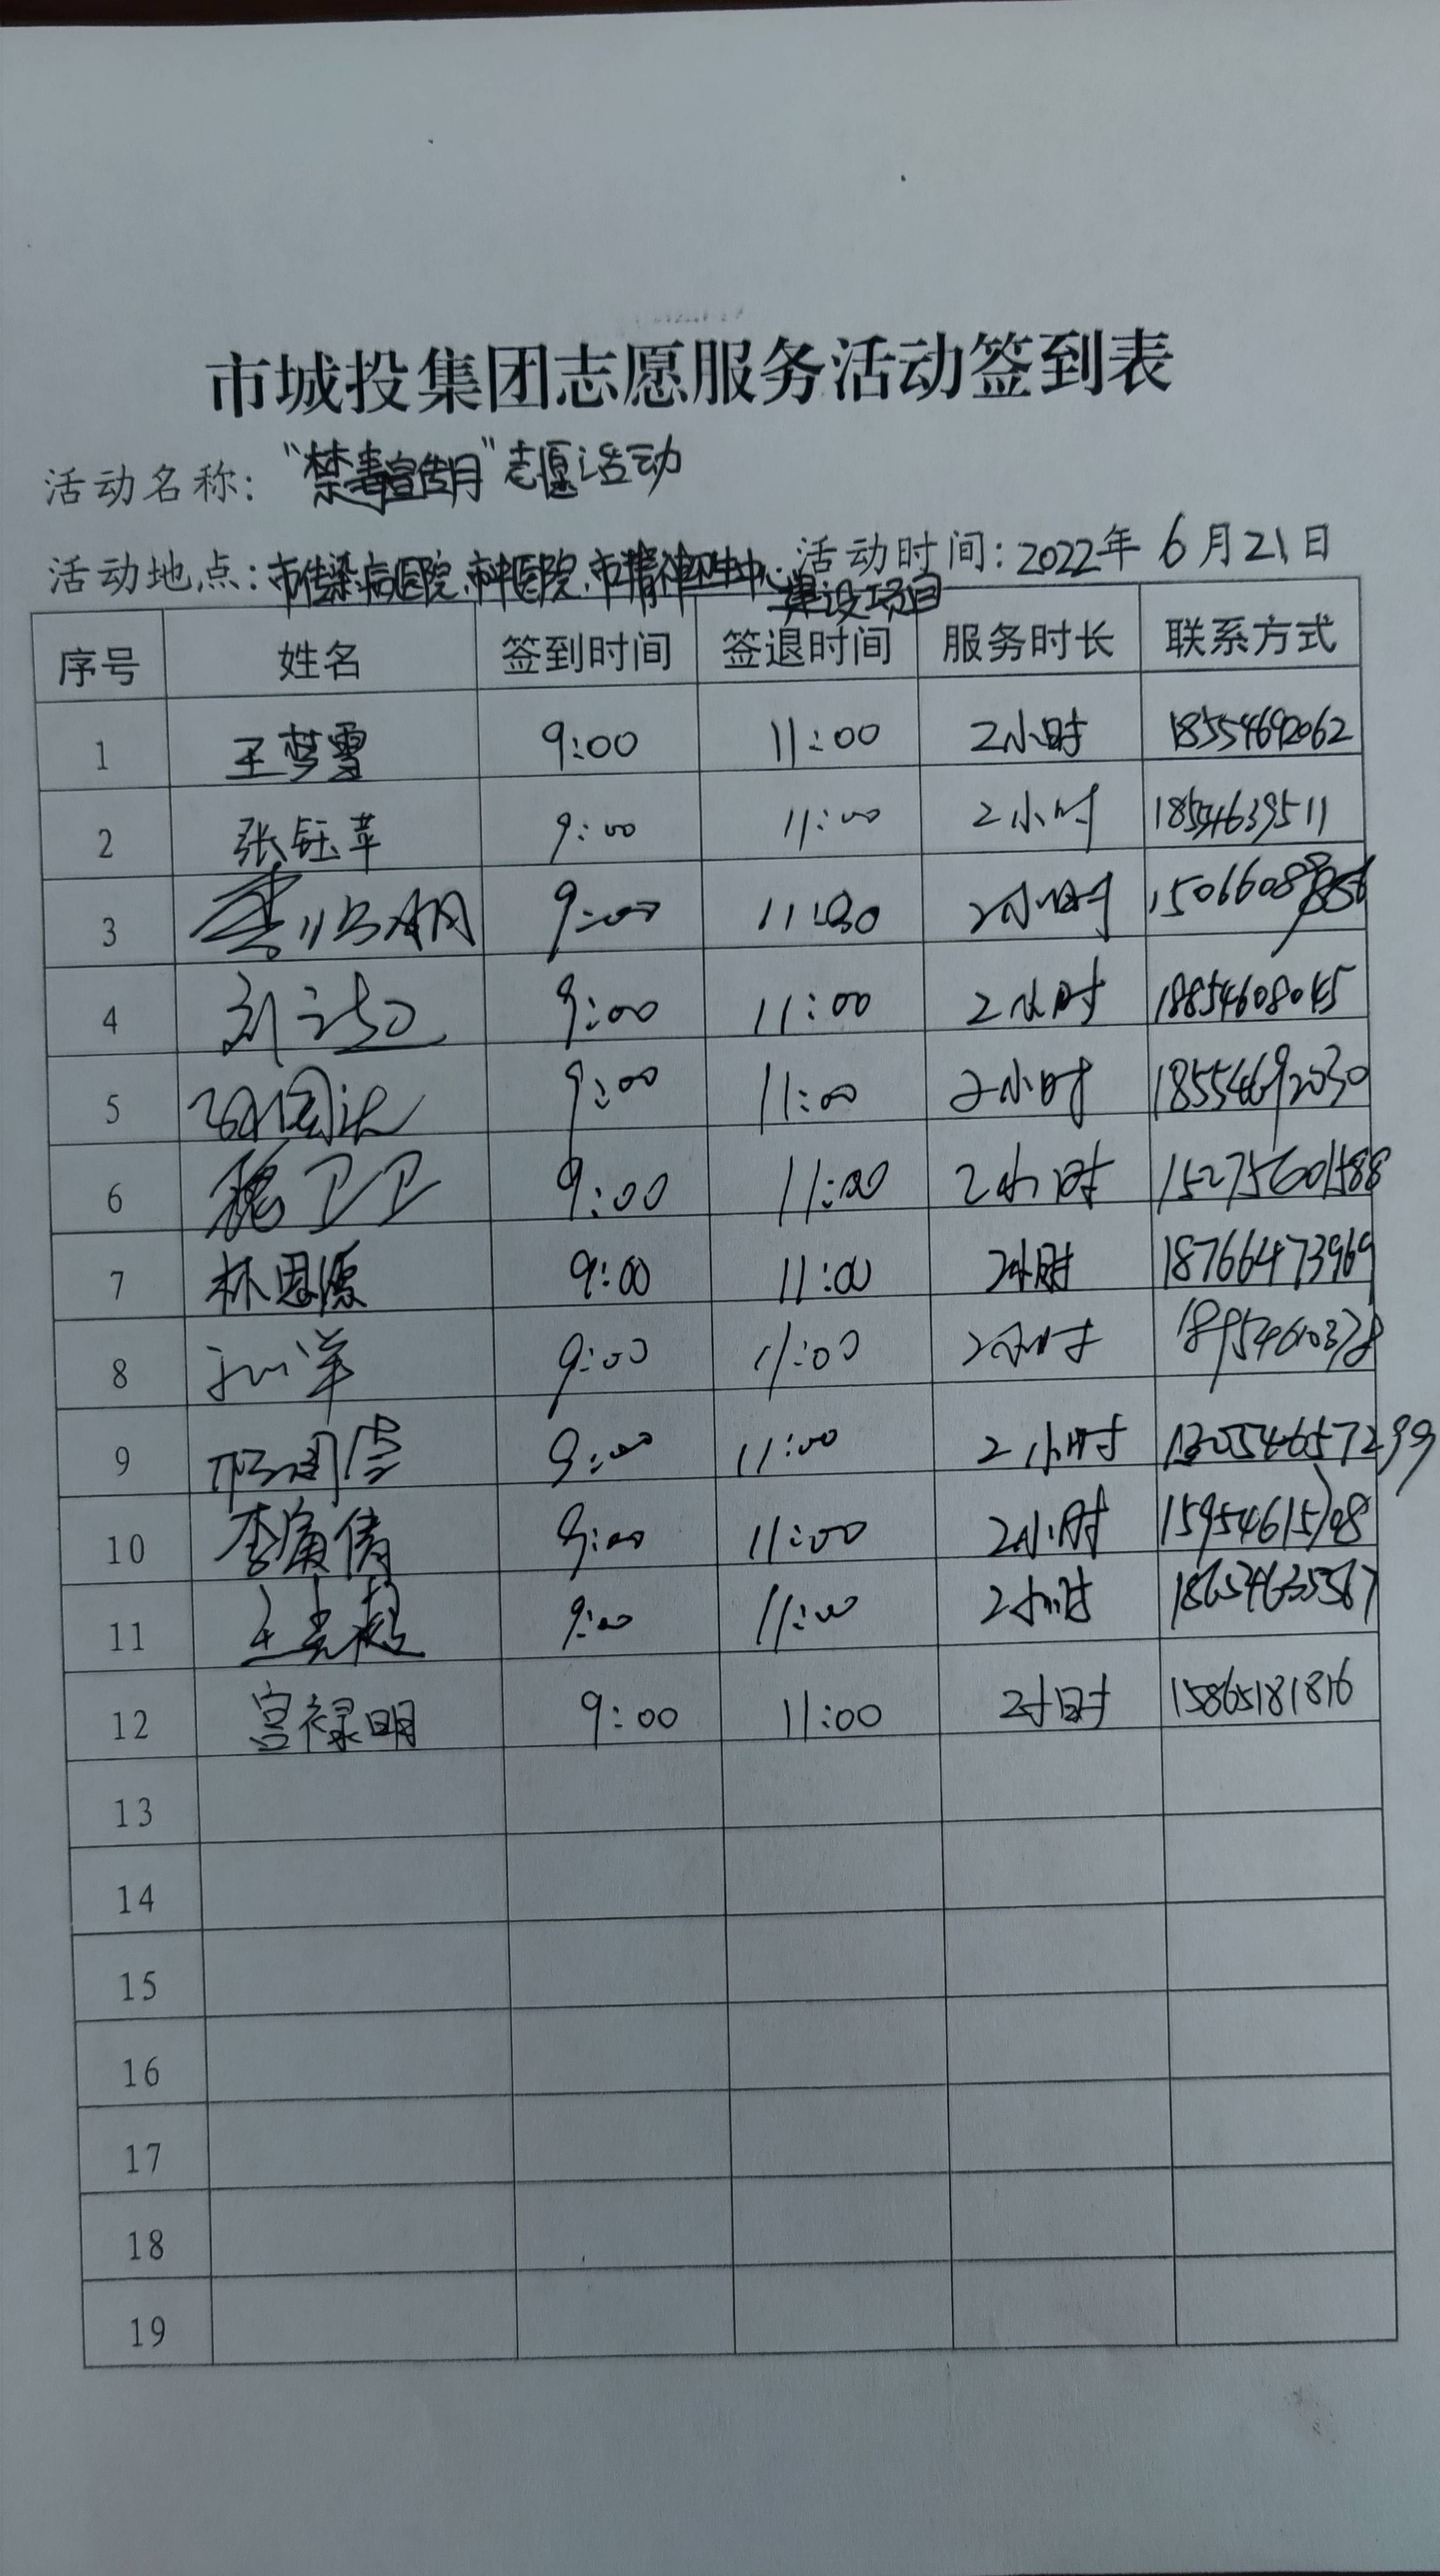 市城投集团志愿服务活动签到表
活动名称："禁毒宣传月"志愿活动
活动地点：市传染病医院、市中医院、市精神卫生中心建设项目 活动时间：2022年6月21日
序号 姓名 签到时间 签退时间 服务时长 联系方式
1 王梦雪 9:00 11:00 2小时 18554692062
2 张钰苹 9:00 11:00 2小时 18554639511
3 9:00 11:00 2小时
4 9:00 11:00 2小时 18854608045
5 9:00 11:00 2小时 18554692030
6 9:00 11:00 2小时 15275601588
7 林恩源 9:00 11:00 2小时 18766473969
8 孙洋 9:00 11:00 2小时 18954610378
9 9:00 11:00 2小时
10 9:00 11:00 2小时
11 9:00 11:00 2小时 18654635567
12 宫禄明 9:00 11:00 2小时 15865181816
13
14
15
16
17
18
19